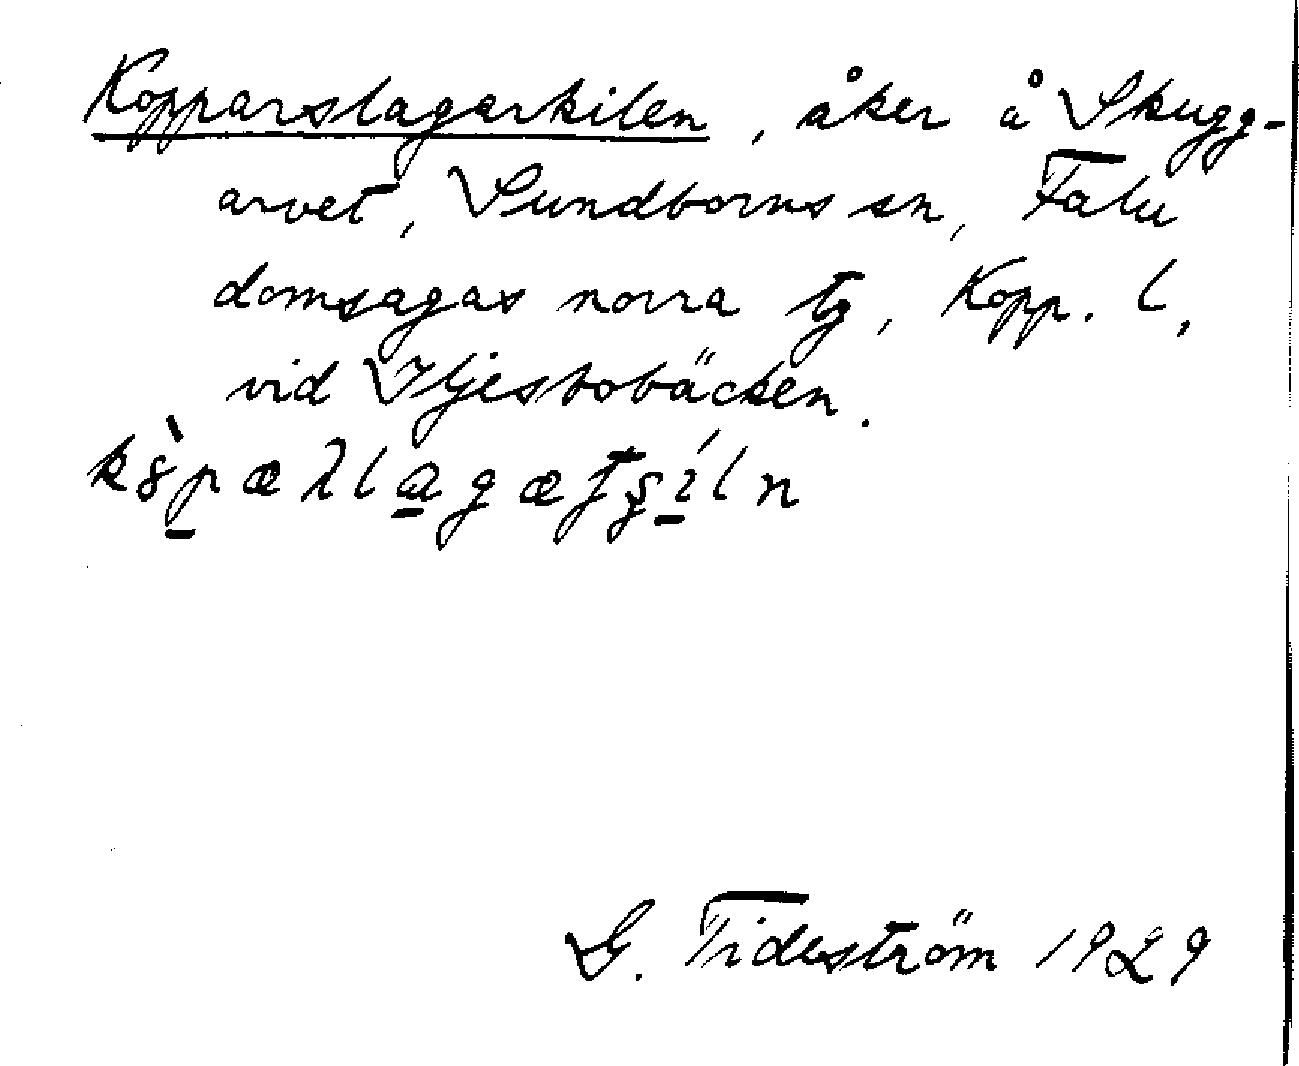 Kopparslagarkilen, åker å Skugg-
arvet, Sundborns sn, Falu
domsagas norra tg, Kopp. l,
vid Hjesbobäcken.
G. Tideström 1929